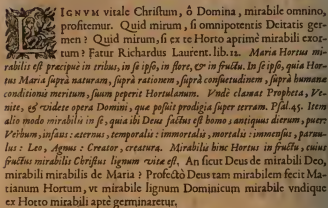 LIGNVM vitale Christum, ô Domina, mirabile omnino,
profitemur. Quid mirum, si omnipotentis Deitatis ger-
men? Quid mirum, si ex te Horto aprimè mirabili exor-
tum? Fatur Richardus Laurent. lib. 12. Maria Hortus mi-
rabilis est præcipuè in tribus, in se ipso, in flore, & in fructu. In se ipso, quia Hor-
tus Maria suprà naturam, suprà rationem, suprà consuetudinem, suprà humanæ
conditionis meritum, suum peperit Hortulanum. Vndè clamat Propheta, Ve-
nite, & videte opera Domini, quæ posuit prodigia super terram. Psal. 45. Item
alio modo mirabilis in se, quia ibi Deus factus est homo, antiquus dierum, puer:
Verbum, infans: æternus, temporalis: immortalis, mortalis: immensus, paruu-
lus: Leo, Agnus: Creator, creatura. Mirabilis hinc Hortus in fructu, cuius
fructus mirabilis Christus lignum vitæ est. An sicut Deus de mirabili Deo,
mirabilis mirabilis de Maria? Profectò Deus tam mirabilem fecit Ma-
rianum Hortum, vt mirabile lignum Dominicum mirabile vndique
ex Horto mirabili aptè germinaretur.